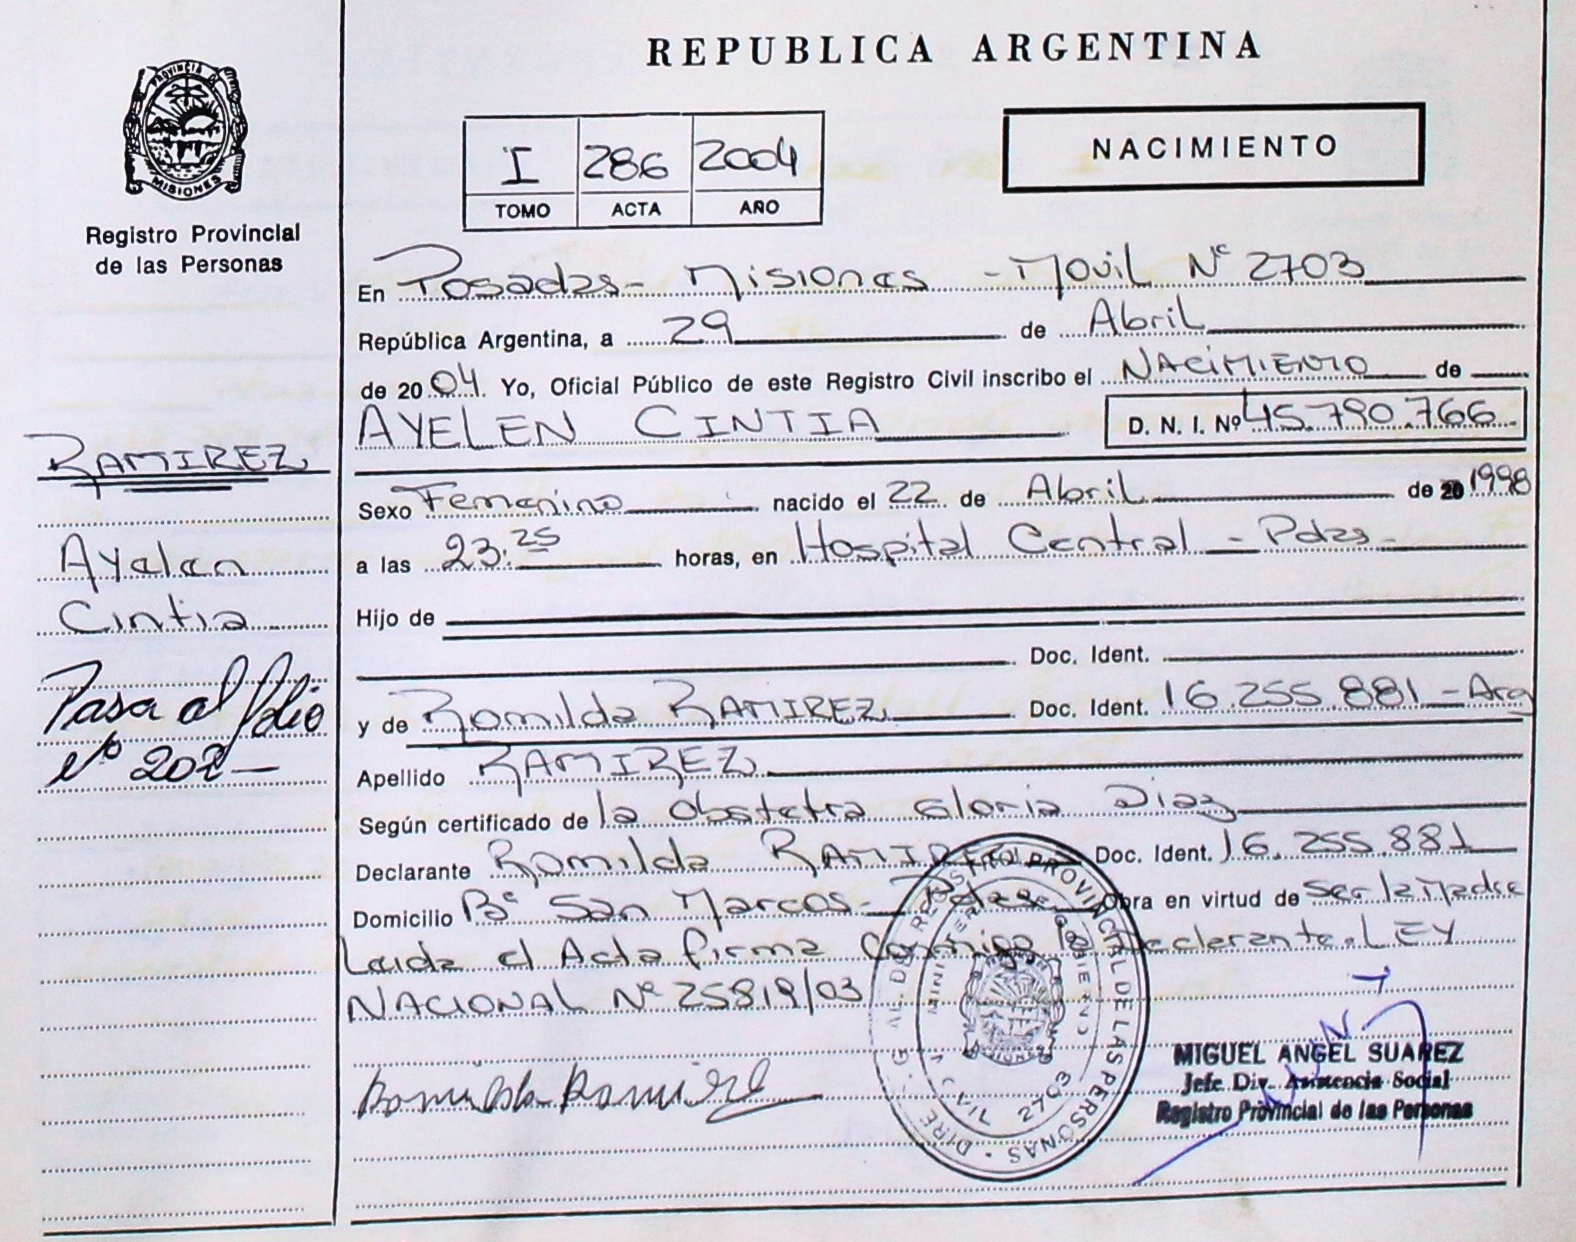 REPUBLICA ARGENTINA
PROVINCIA DE
MISIONES
Registro Provincial
de las Personas
I 286 2004
TOMO ACTA AÑO
NACIMIENTO
En Posadas- Misiones - Movil Nº 2703
República Argentina, a 29 de Abril
de 2004. Yo, Oficial Público de este Registro Civil inscribo el NACIMIENTO de
AYELEN CINTIA D. N. I. Nº 45.790.766
RAMIREZ
Sexo Femenino nacido el 22 de Abril de 20 1998
Ayelen
a las 23:25 horas, en Hospital Central - Pdas-
Cintia
Hijo de
Doc. Ident.
Pasa al folio
Nº 202-
y de Romilda RAMIREZ Doc. Ident. 16.255.881 - Arg
Apellido RAMIREZ
Según certificado de la obstetra Gloria Diaz
Declarante Romilda RAMIREZ Doc. Ident. 16.255.881
Domicilio Bº San Marcos- Pdas Obra en virtud de Ser la Madre
Leida el Acta firma Conmigo la Declarante. LEY
NACIONAL Nº 25819/03
Romilda Ramirez
DIRE . G AL DEL REGISTRO PROVINCIAL DE LAS PERSONAS
MINISTERIO DE GOBIERNO
MISIONES
CIVIL 2703
MIGUEL ANGEL SUAREZ
Jefe Div. Asistencia Social
Registro Provincial de las Personas